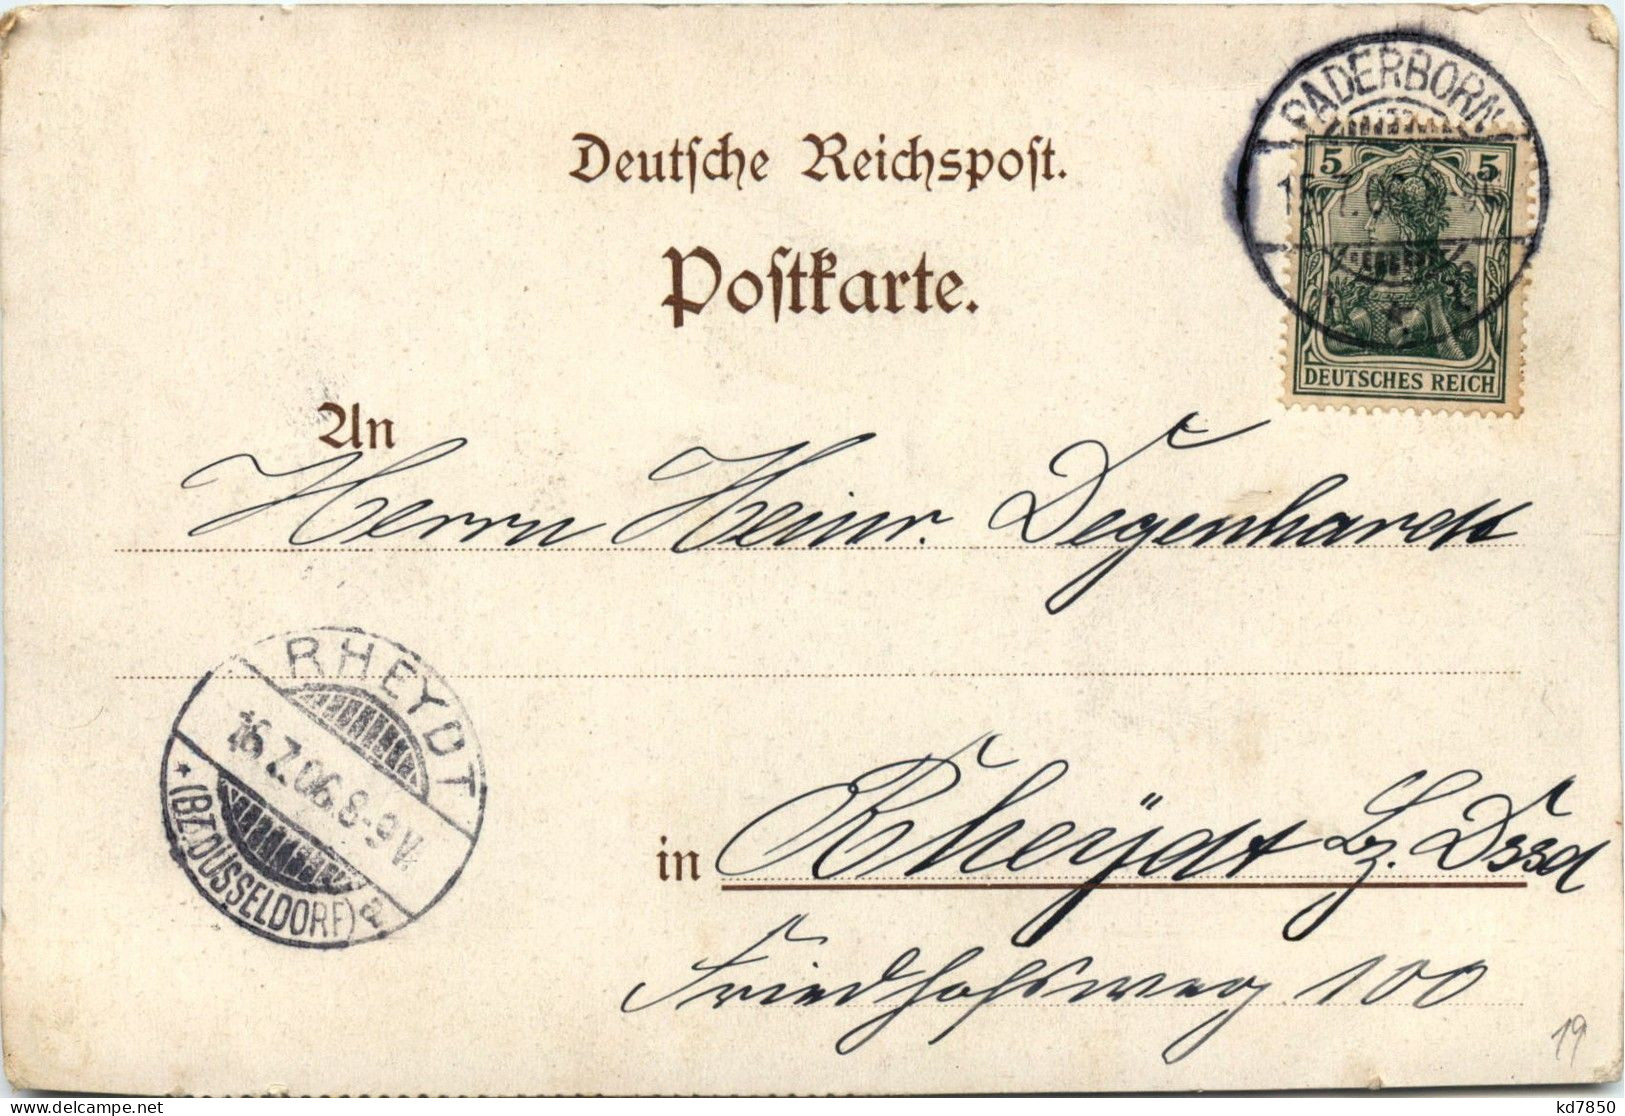 Deutsche Reichspost.
Postkarte.
PADERBORN
5 5
DEUTSCHES REICH
An
Herrn Heinr. Degenhardt
RHEYDT
16.7.06.8-9V.
* (BZ.DÜSSELDORF) a
in Rheydt Bz. Dssd
Friedhofsweg 100
19
delcampe.net
kd7850